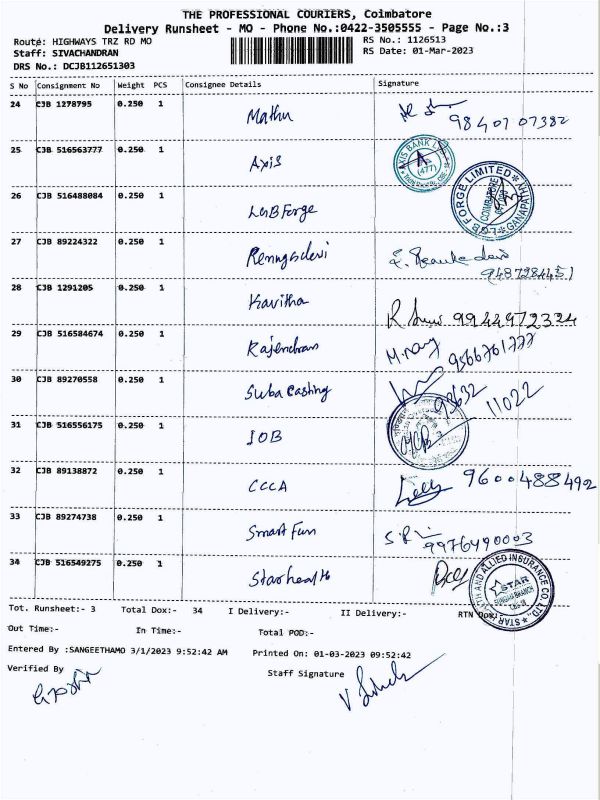 THE PROFESSIONAL COURIERS, Coimbatore
Delivery Runsheet - MO - Phone No.:0422-3505555 - Page No.:3
Route: HIGHWAYS TRZ RD MO RS No.: 1126513
Staff: SIVACHANDRAN RS Date: 01-Mar-2023
DRS No.: DCJB112651303
S No Consignment No Weight PCS Consignee Details Signature
24 CJB 1278795 0.250 1 Mathu 98401 07382
25 CJB 516563777 0.250 1 Axis AXIS BANK (477)
26 CJB 516488084 0.250 1 LGB Forge LGB FORGE LIMITED COIMBATORE
27 CJB 89224322 0.250 1 9487284451
28 CJB 1291205 0.250 1 Kavitha 9944972334
29 CJB 516584674 0.250 1 Rajendran 9566761777
30 CJB 89270558 0.250 1 Suba Casting 98632 11022
31 CJB 516556175 0.250 1 IOB
32 CJB 89138872 0.250 1 CCCA 9600488492
33 CJB 89274738 0.250 1 Smart Fun 9976490003
34 CJB 516549275 0.250 1 Starhealth STAR HEALTH AND ALLIED INSURANCE CO. LTD.
Tot. Runsheet:- 3 Total Dox:- 34 I Delivery:- II Delivery:- RTN Dox:-
Out Time:- In Time:- Total POD:-
Entered By :SANGEETHAMO 3/1/2023 9:52:42 AM Printed On: 01-03-2023 09:52:42
Verified By Staff Signature